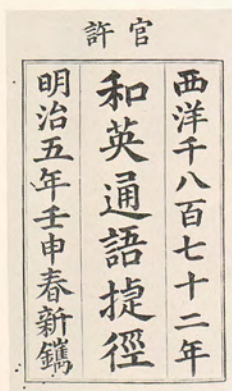 官許
西洋千八百七十二年
和英通語捷徑
明治五年壬申春新鐫